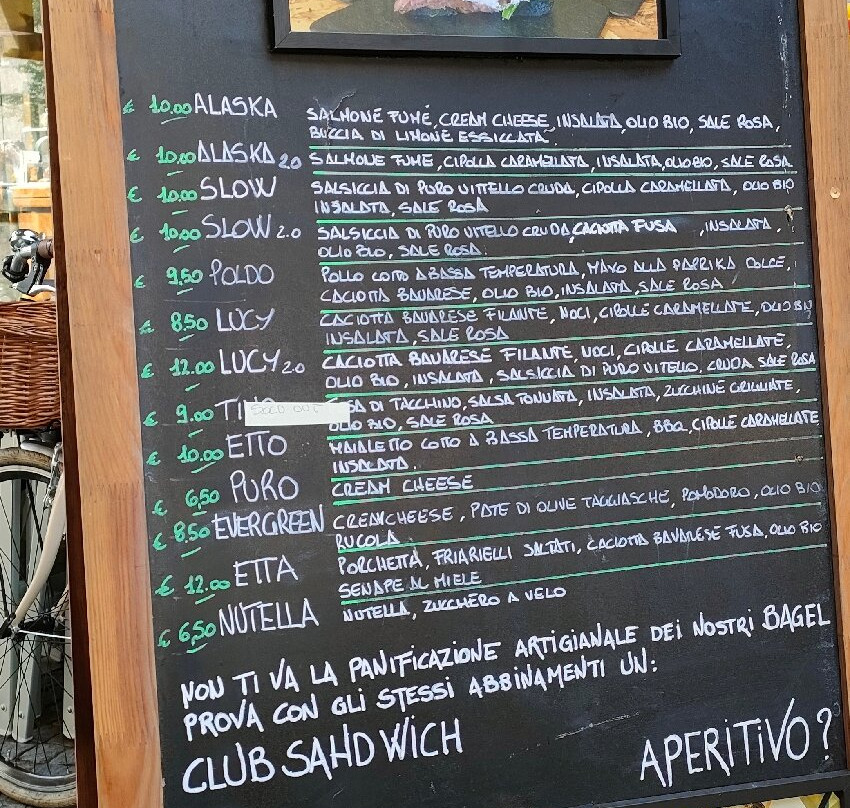 € 10.00 ALASKA SALMONE FUMÉ, CREAM CHEESE, INSALATA, OLIO BIO, SALE ROSA,
BUCCIA DI LIMONE ESSICCATA
€ 10.00 ALASKA 2.0 SALMONE FUME, CIPOLLA CARAMELLATA, INSALATA, OLIO BIO, SALE ROSA
€ 10.00 SLOW SALSICCIA DI PURO VITELLO CRUDA, CIPOLLA CARAMELLATA, OLIO BIO
INSALATA, SALE ROSA
€ 10.00 SLOW 2.0 SALSICCIA DI PURO VITELLO CRUDA, CACIOTTA FUSA , INSALATA,
OLIO BIO, SALE ROSA
€ 9.50 POLDO POLLO COTTO A BASSA TEMPERATURA, MAYO ALLA PAPRIKA DOLCE,
CACIOTTA BAVARESE, OLIO BIO, INSALATA, SALE ROSA
€ 8.50 LUCY CACIOTTA BAVARESE FILANTE, NOCI, CIPOLLE CARAMELLATE, OLIO BIO
INSALATA, SALE ROSA
€ 12.00 LUCY 2.0 CACIOTTA BAVARESE FILANTE, NOCI, CIPOLLE CARAMELLATE,
OLIO BIO, INSALATA, SALSICCIA DI PURO VITELLO, CRUDA SALE ROSA
€ 9.00 SOLD OUT DI TACCHINO, SALSA TONNATA, INSALATA, ZUCCHINE GRIGLIATE,
OLIO BIO, SALE ROSA
€ 10.00 ETTO MAIALETTO COTTO A BASSA TEMPERATURA, BBQ, CIPOLLE CARAMELLATE
INSALATA.
€ 6,50 PURO CREAM CHEESE
€ 8.50 EVERGREEN CREAMCHEESE, PATE DI OLIVE TAGGIASCHE, POMODORO, OLIO BIO
RUCOLA
€ 12.00 ETTA PORCHETTA, FRIARIELLI SALTATI, CACIOTTA BAVARESE FUSA, OLIO BIO
SENAPE AL MIELE
€ 6,50 NUTELLA NUTELLA, ZUCCHERO A VELO
NON TI VA LA PANIFICAZIONE ARTIGIANALE DEI NOSTRI BAGEL
PROVA CON GLI STESSI ABBINAMENTI UN:
CLUB SANDWICH APERITIVO?